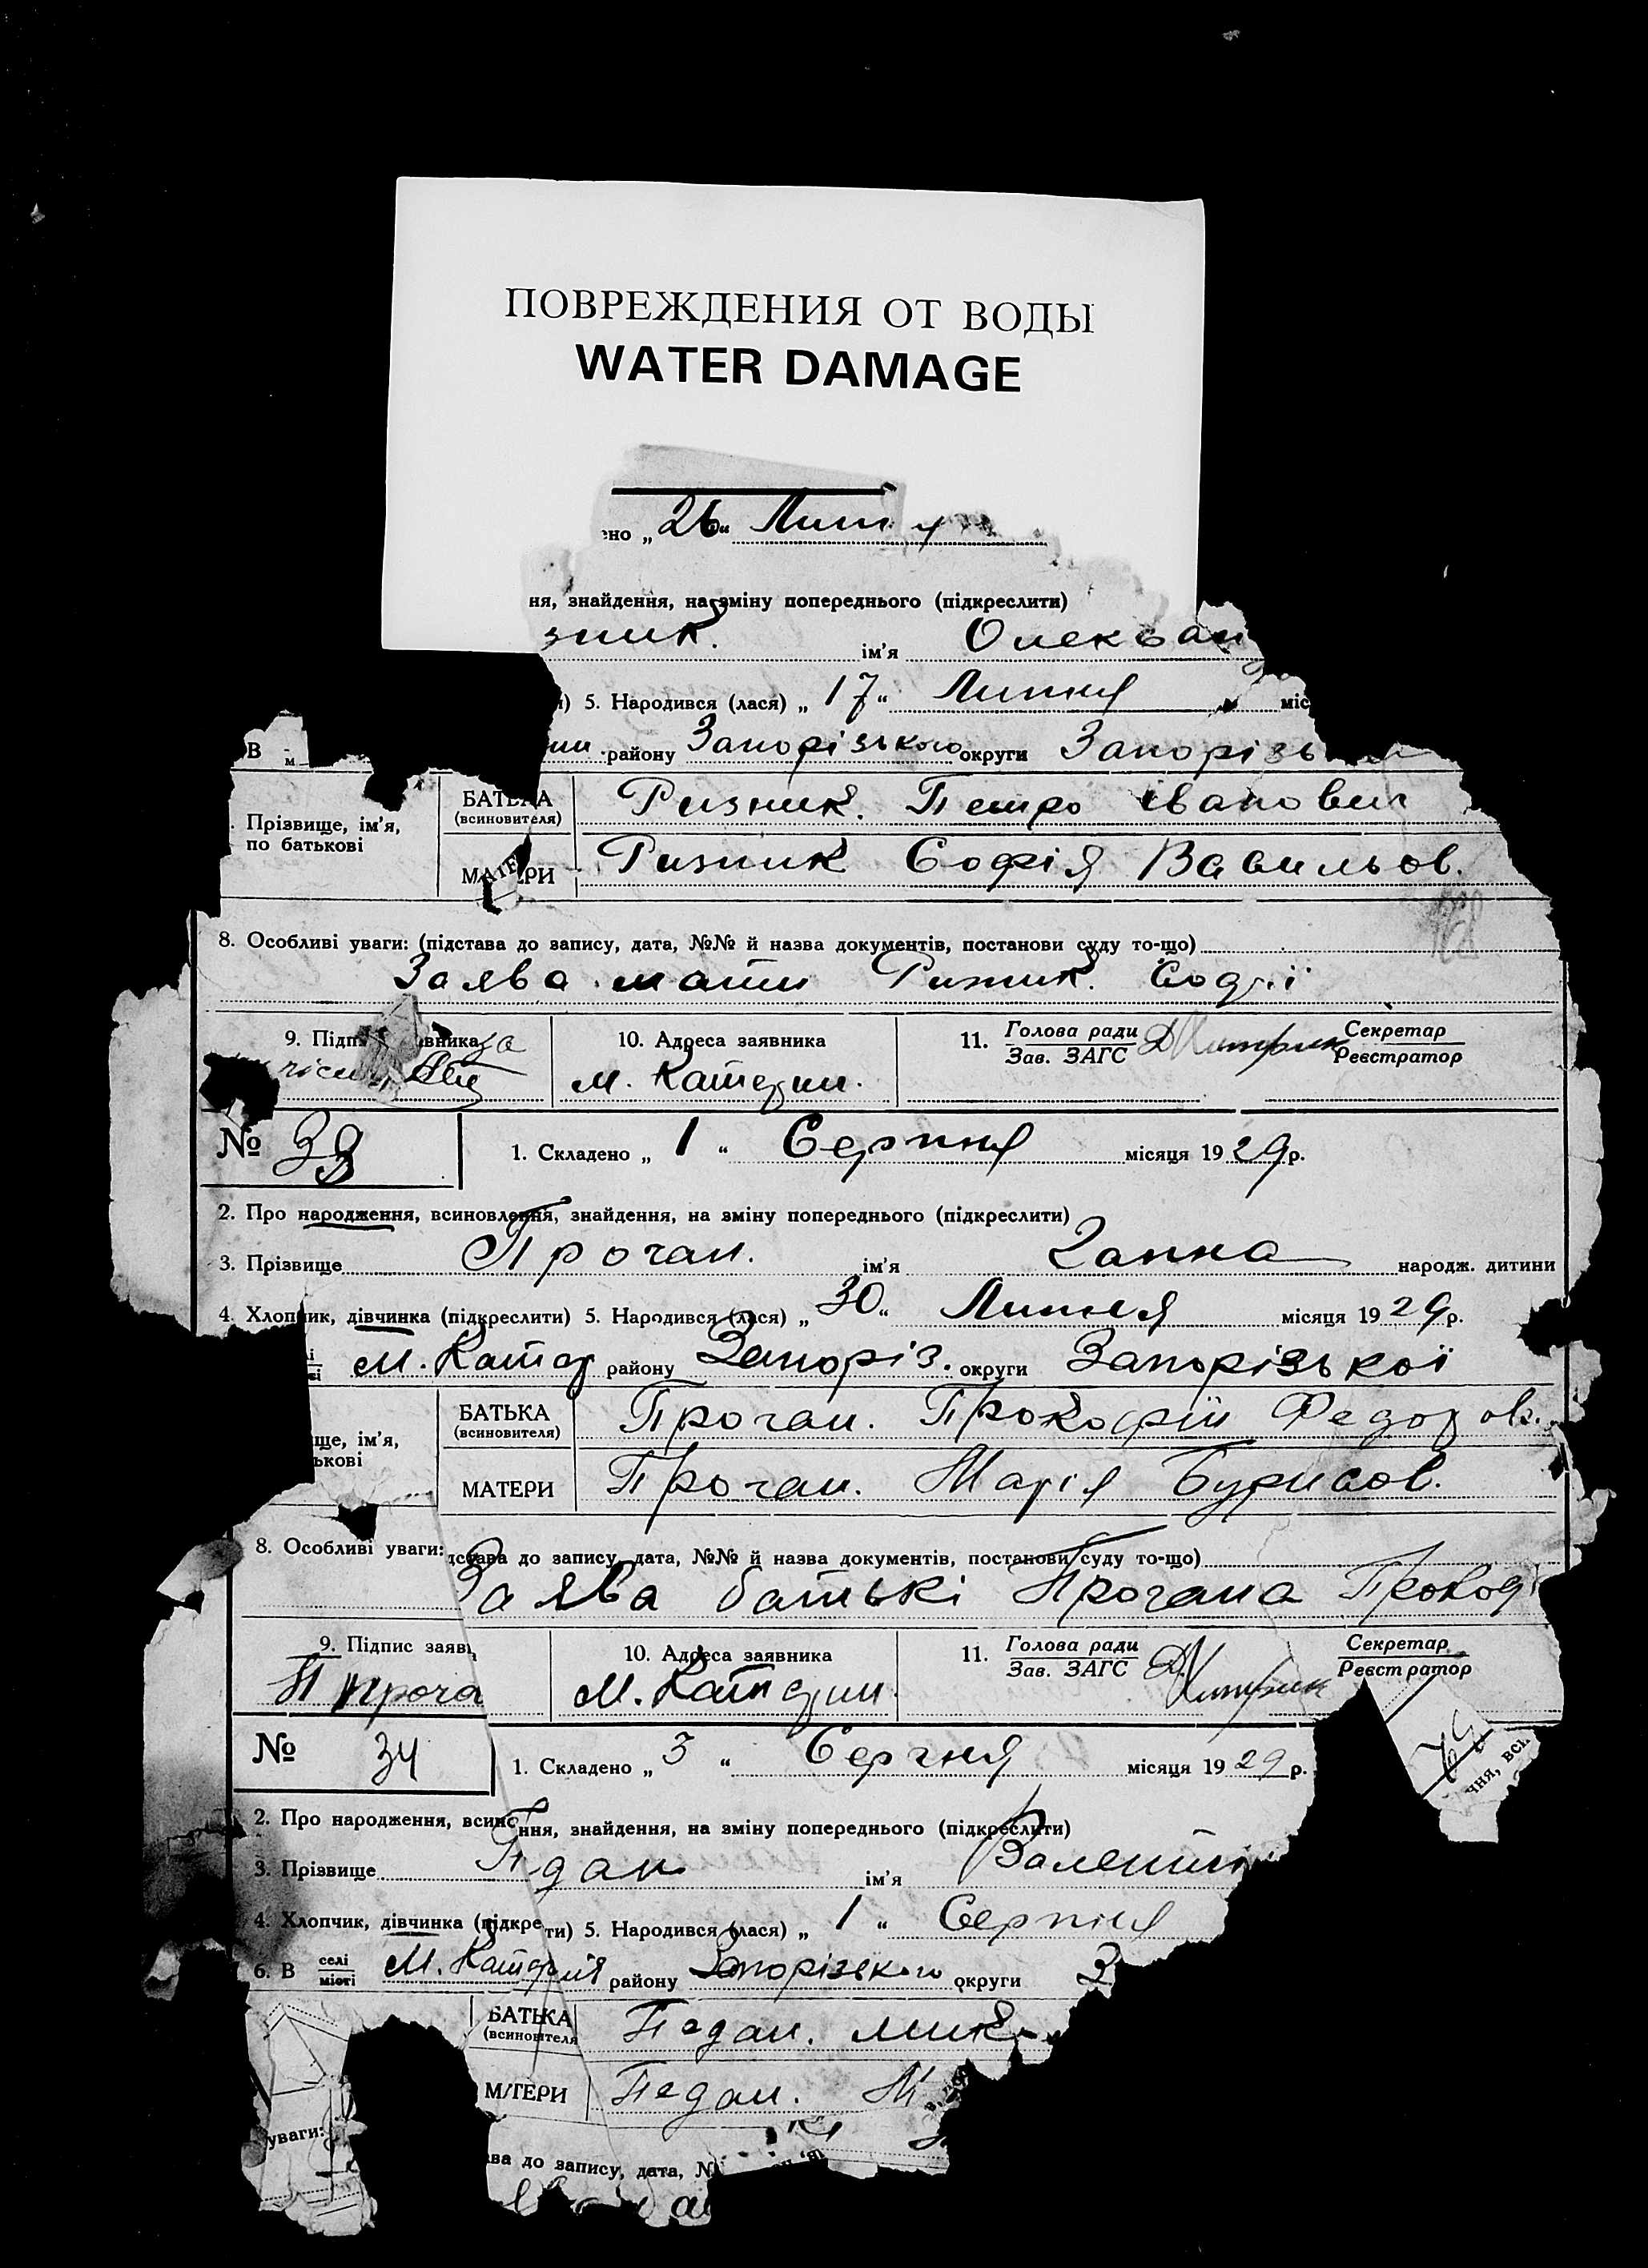 ПОВРЕЖДЕНИЯ ОТ ВОДЫ
WATER DAMAGE
ено „ 26 “
ня, знайдення, на зміну попереднього (підкреслити)
зник. ім'я Олексан
) 5. Народився (лася) „ 17 “ Липня міс
В району Запорізького округи Запорізь
Прізвище, ім'я, по батькові
БАТЬКА (всиновителя) Ризник. Петро Іванович
МАТЕРИ Ризник Софія Вавильов.
8. Особливі уваги: (підстава до запису, дата, №№ й назва документів, постанови суду то-що)
Заява мати Ризник. Софії
9. Підп вника за
10. Адреса заявника
м. Катерин.
11. Голова ради
Зав. ЗАГС
Секретар
Реєстратор
№ 33
1. Складено „ 1 “ Серпня місяця 1929 р.
2. Про народження, всиновлення, знайдення, на зміну попереднього (підкреслити)
3. Прізвище Прочан. ім'я Ганна народж. дитини
4. Хлопчик, дівчинка (підкреслити) 5. Народився (лася) „ 30 “ Липня місяця 1929 р.
м. Катер району Запоріз. округи Запорізької
ще, ім'я,
ькові
БАТЬКА (всиновителя) Прочан. Прокофій Федоров.
МАТЕРИ Прочан. Марія Бурисов.
8. Особливі уваги: дстава до запису, дата, №№ й назва документів, постанови суду то-що)
Заява батькі Прочана Прокоф
9. Підпис заяв
П проча
10. Адреса заявника
м. Катерин.
11. Голова ради
Зав. ЗАГС
Секретар
Реєстратор
№ 34
1. Складено „ 3 “ Серпня місяця 1929 р.
чня, всі
2. Про народження, всино ння, знайдення, на зміну попереднього (підкреслити)
3. Прізвище П дан ім'я Валентин
4. Хлопчик, дівчинка (підкре ти) 5. Народився (лася) „ 1 “ Серпня
6. В селі
місті М. Катерин району Запорізького округи З
БАТЬКА (всиновителя Педан. Мик
МАТЕРИ Педан. М
уваги:
ва до запису, дата, №